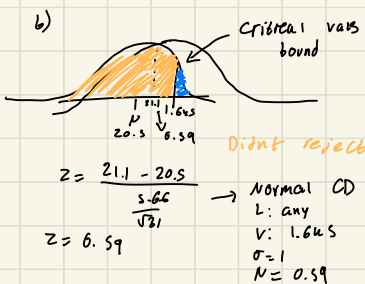 b)
Critical vars
bound
21.1 1.645
μ
20.5 0.59
Didnt reject
Z = 21.1 - 20.5
5.66
√31
Z = 0.59
→ Normal CD
L: any
U: 1.645
σ = 1
μ = 0.59